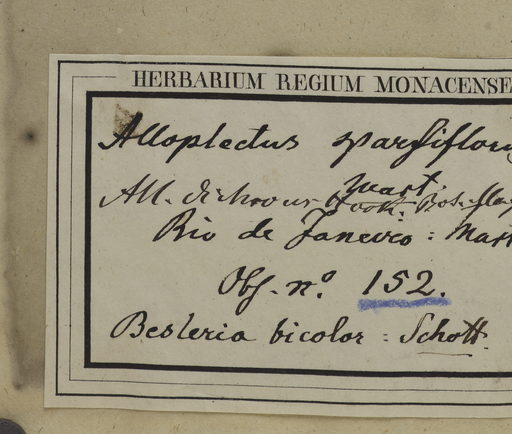 HERBARIUM REGIUM MONACENSE
Alloplectus sparsiflorus
Mart.
All. dichrous Hook. Bot.
Rio de Janeiro : Mart
Obs. nº. 152.
Besleria bicolor : Schott.